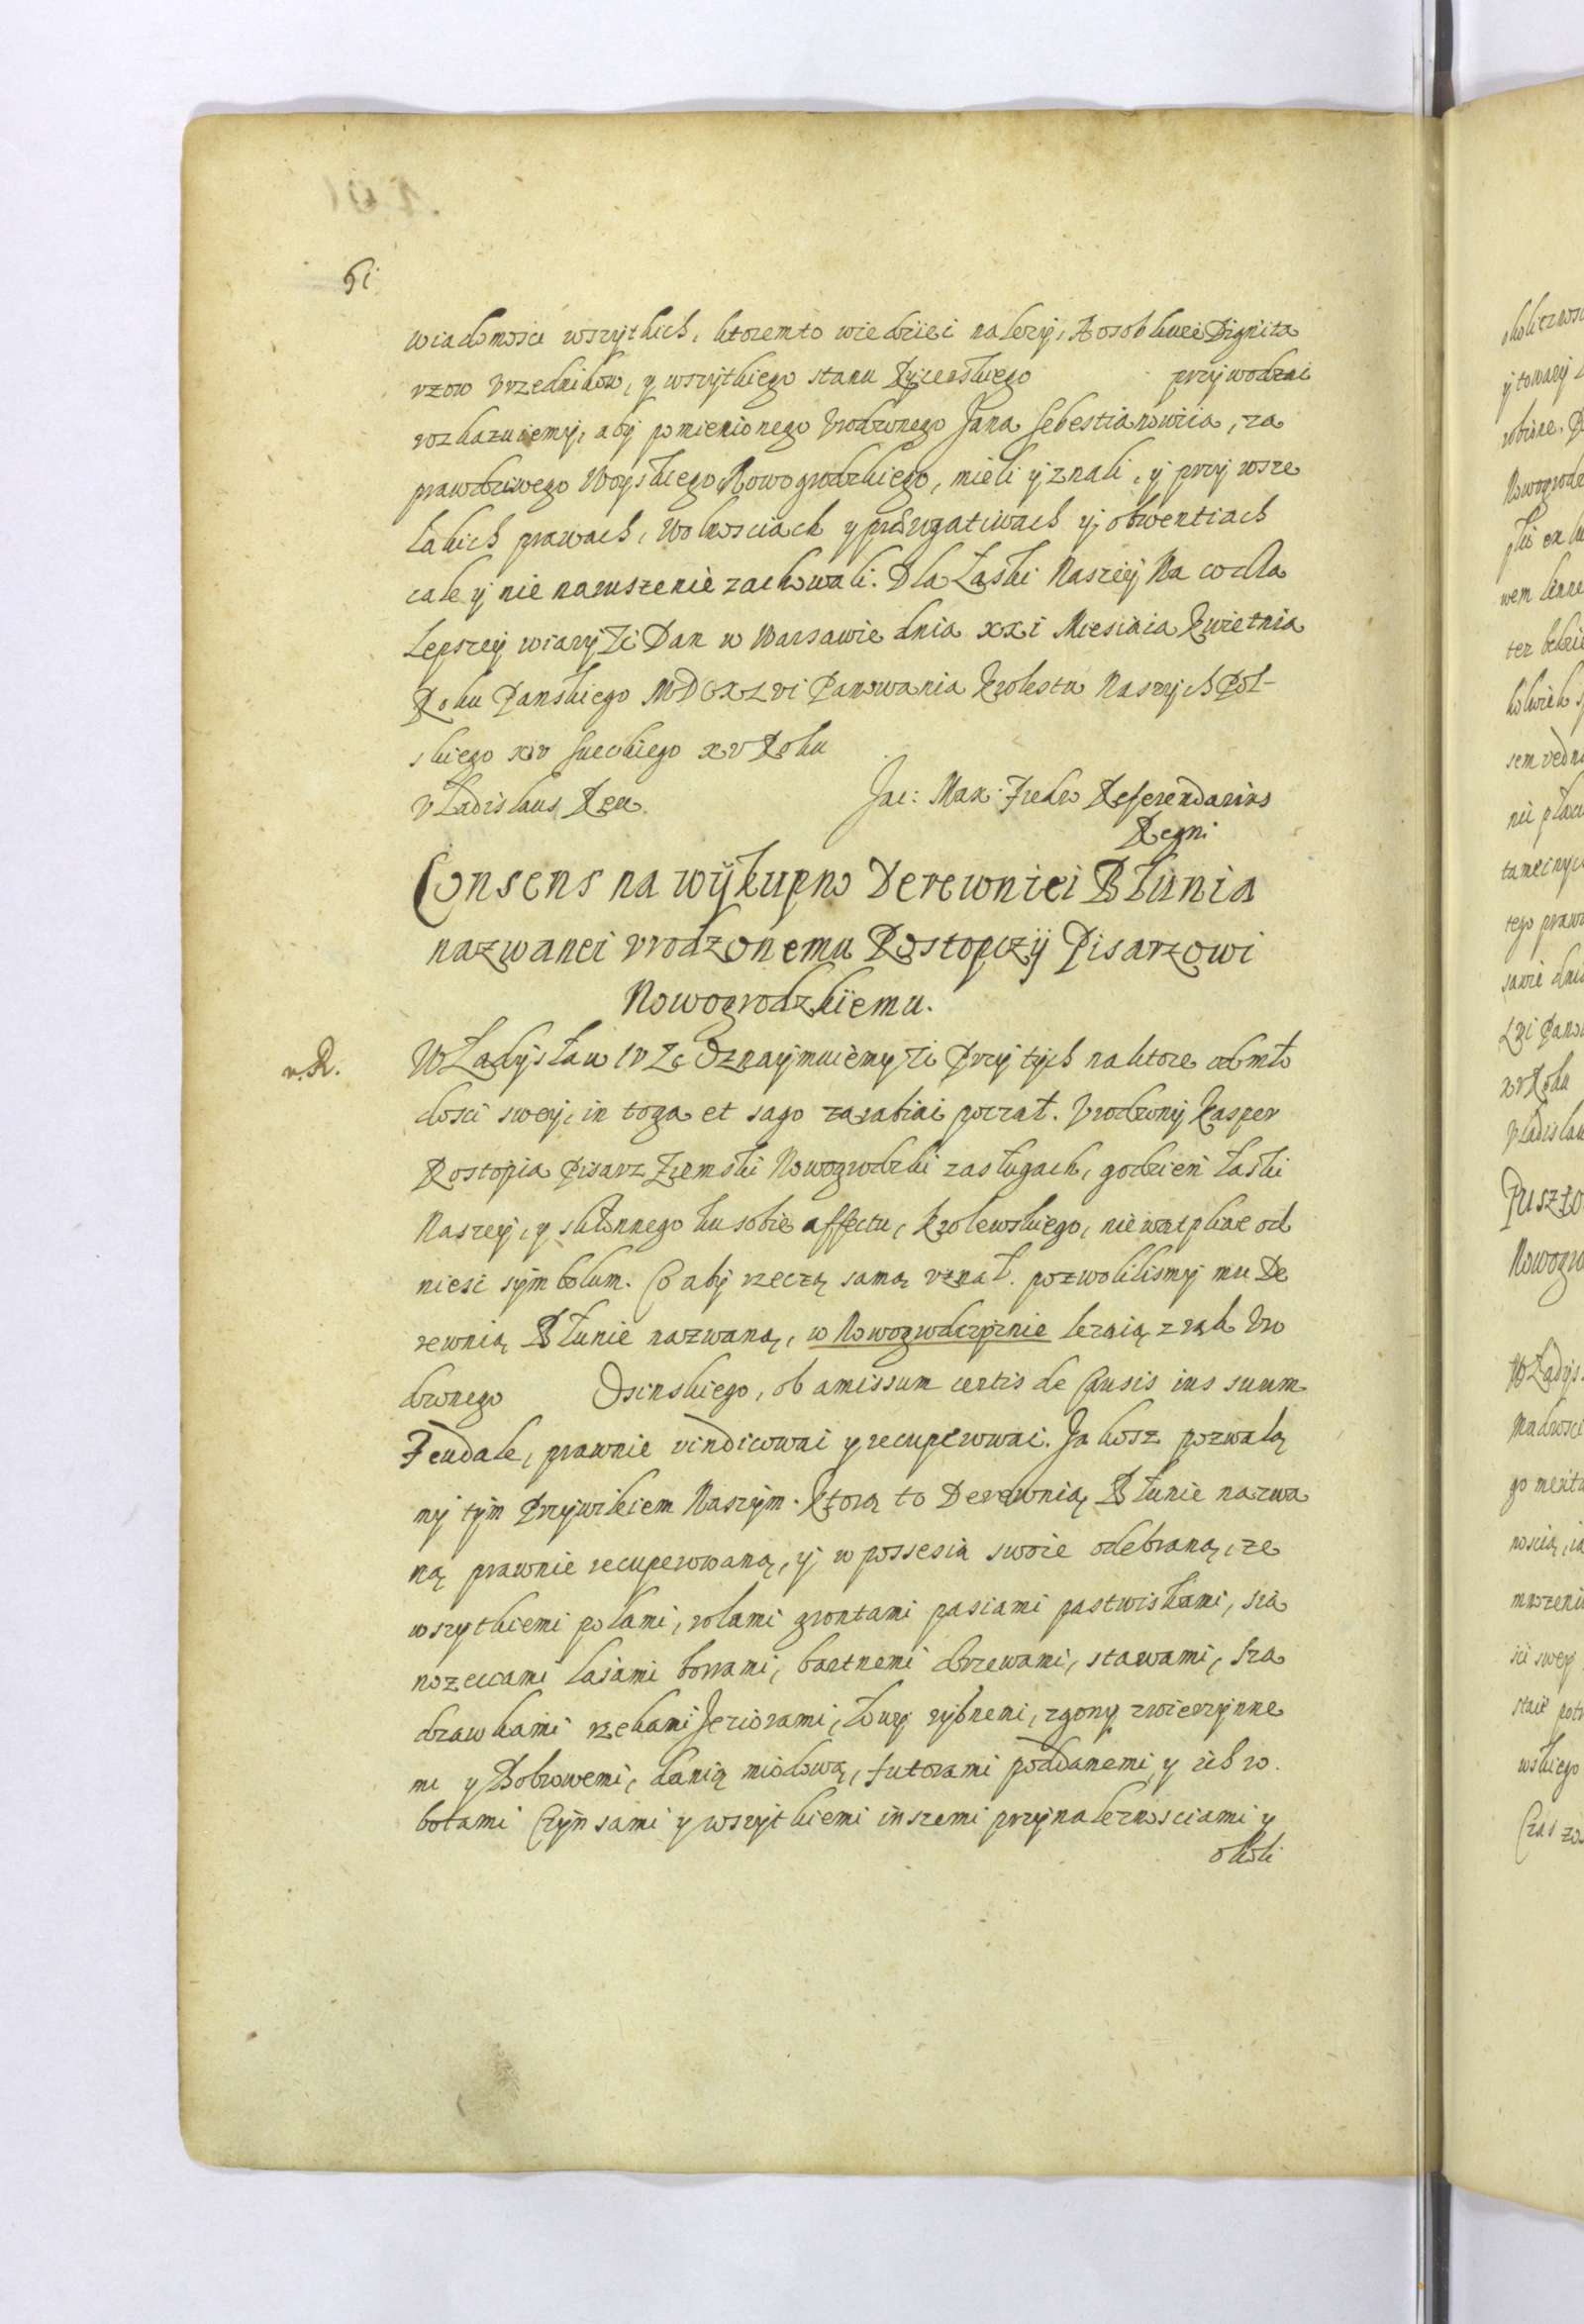 61
wiadomosci wszytkich, ktoremto wiedziec nalezy, A osobliwei Dignita
rzow Vrzednikow, y wszytkiego stanu Rycerskiego przywodzac
rozkazuiemy, aby pomienionego Vrodzonego Jana Sebestianowica, za
prawdziwego Woyskiego Nowogrodzkiego, mieli y znali, y przy wsze
lakich prawach, Wolnosciach y prerogatiwach y obwentiach
cale y nie naruszenie zachowali. Dla Łaski Naszey Na co dla
Lepszey wiary Zc Dan w Warsawie dnia xxi Miesiaca Kwietnia
Roku Panskiego MDCXLvi Panowania Krolestw Naszych Pol-
skiego xiv Sueckiego xv Roku
Vladislaus Rex. Jac: Max: Fredro Referendarius
Regni
Consens na wykupno Derewniei Błunia
nazwanei vrodzonemu Rostopczy Pisarzowi
Nowogrodzkiemu.
v. R. Władysław IV Zc Oznaymuiemy Zc Przy tych na ktore od mło
dosci swey, in toga et sago zarabiac poczał. Vrodzony Kasper
Rostopca Pisarz Ziemski Nowogrodzki zasługach, godzien łaski
Naszey, y skłonnego ku sobie affectu, Krolewskiego, nie watpliwe od
niesc symbolum. Co aby rzeczą samą vznał. pozwolilismy mu De
rewnią Błunie nazwaną, w Nowogrodczyznie lezącą z rąk Vro
dzonego Osinskiego, ob amissum certis de Causis ius suum
Feudale, prawnie vindicowac y recuperowac. Jakosz pozwalą
my tym Przywileiem Naszym. Ktorą to Derewnią Błunie nazwa
ną prawnie recuperowaną, y w possesią swoie odebraną, ze
wszytkiemi polami, rolami grontami pasiami pastwiskami, sia
nozeciami lasami borrami, bartnemi drzewami, stawami, sza
dzawkami rzekami Jeziorami, łowy rybnemi, zgony zwierzynne
mi y Bobrowemi, danią miodową, futorami poddanemi y ich ro.
botami Czynsami y wszytkiemi inszemi przynaleznosciami y
okoli